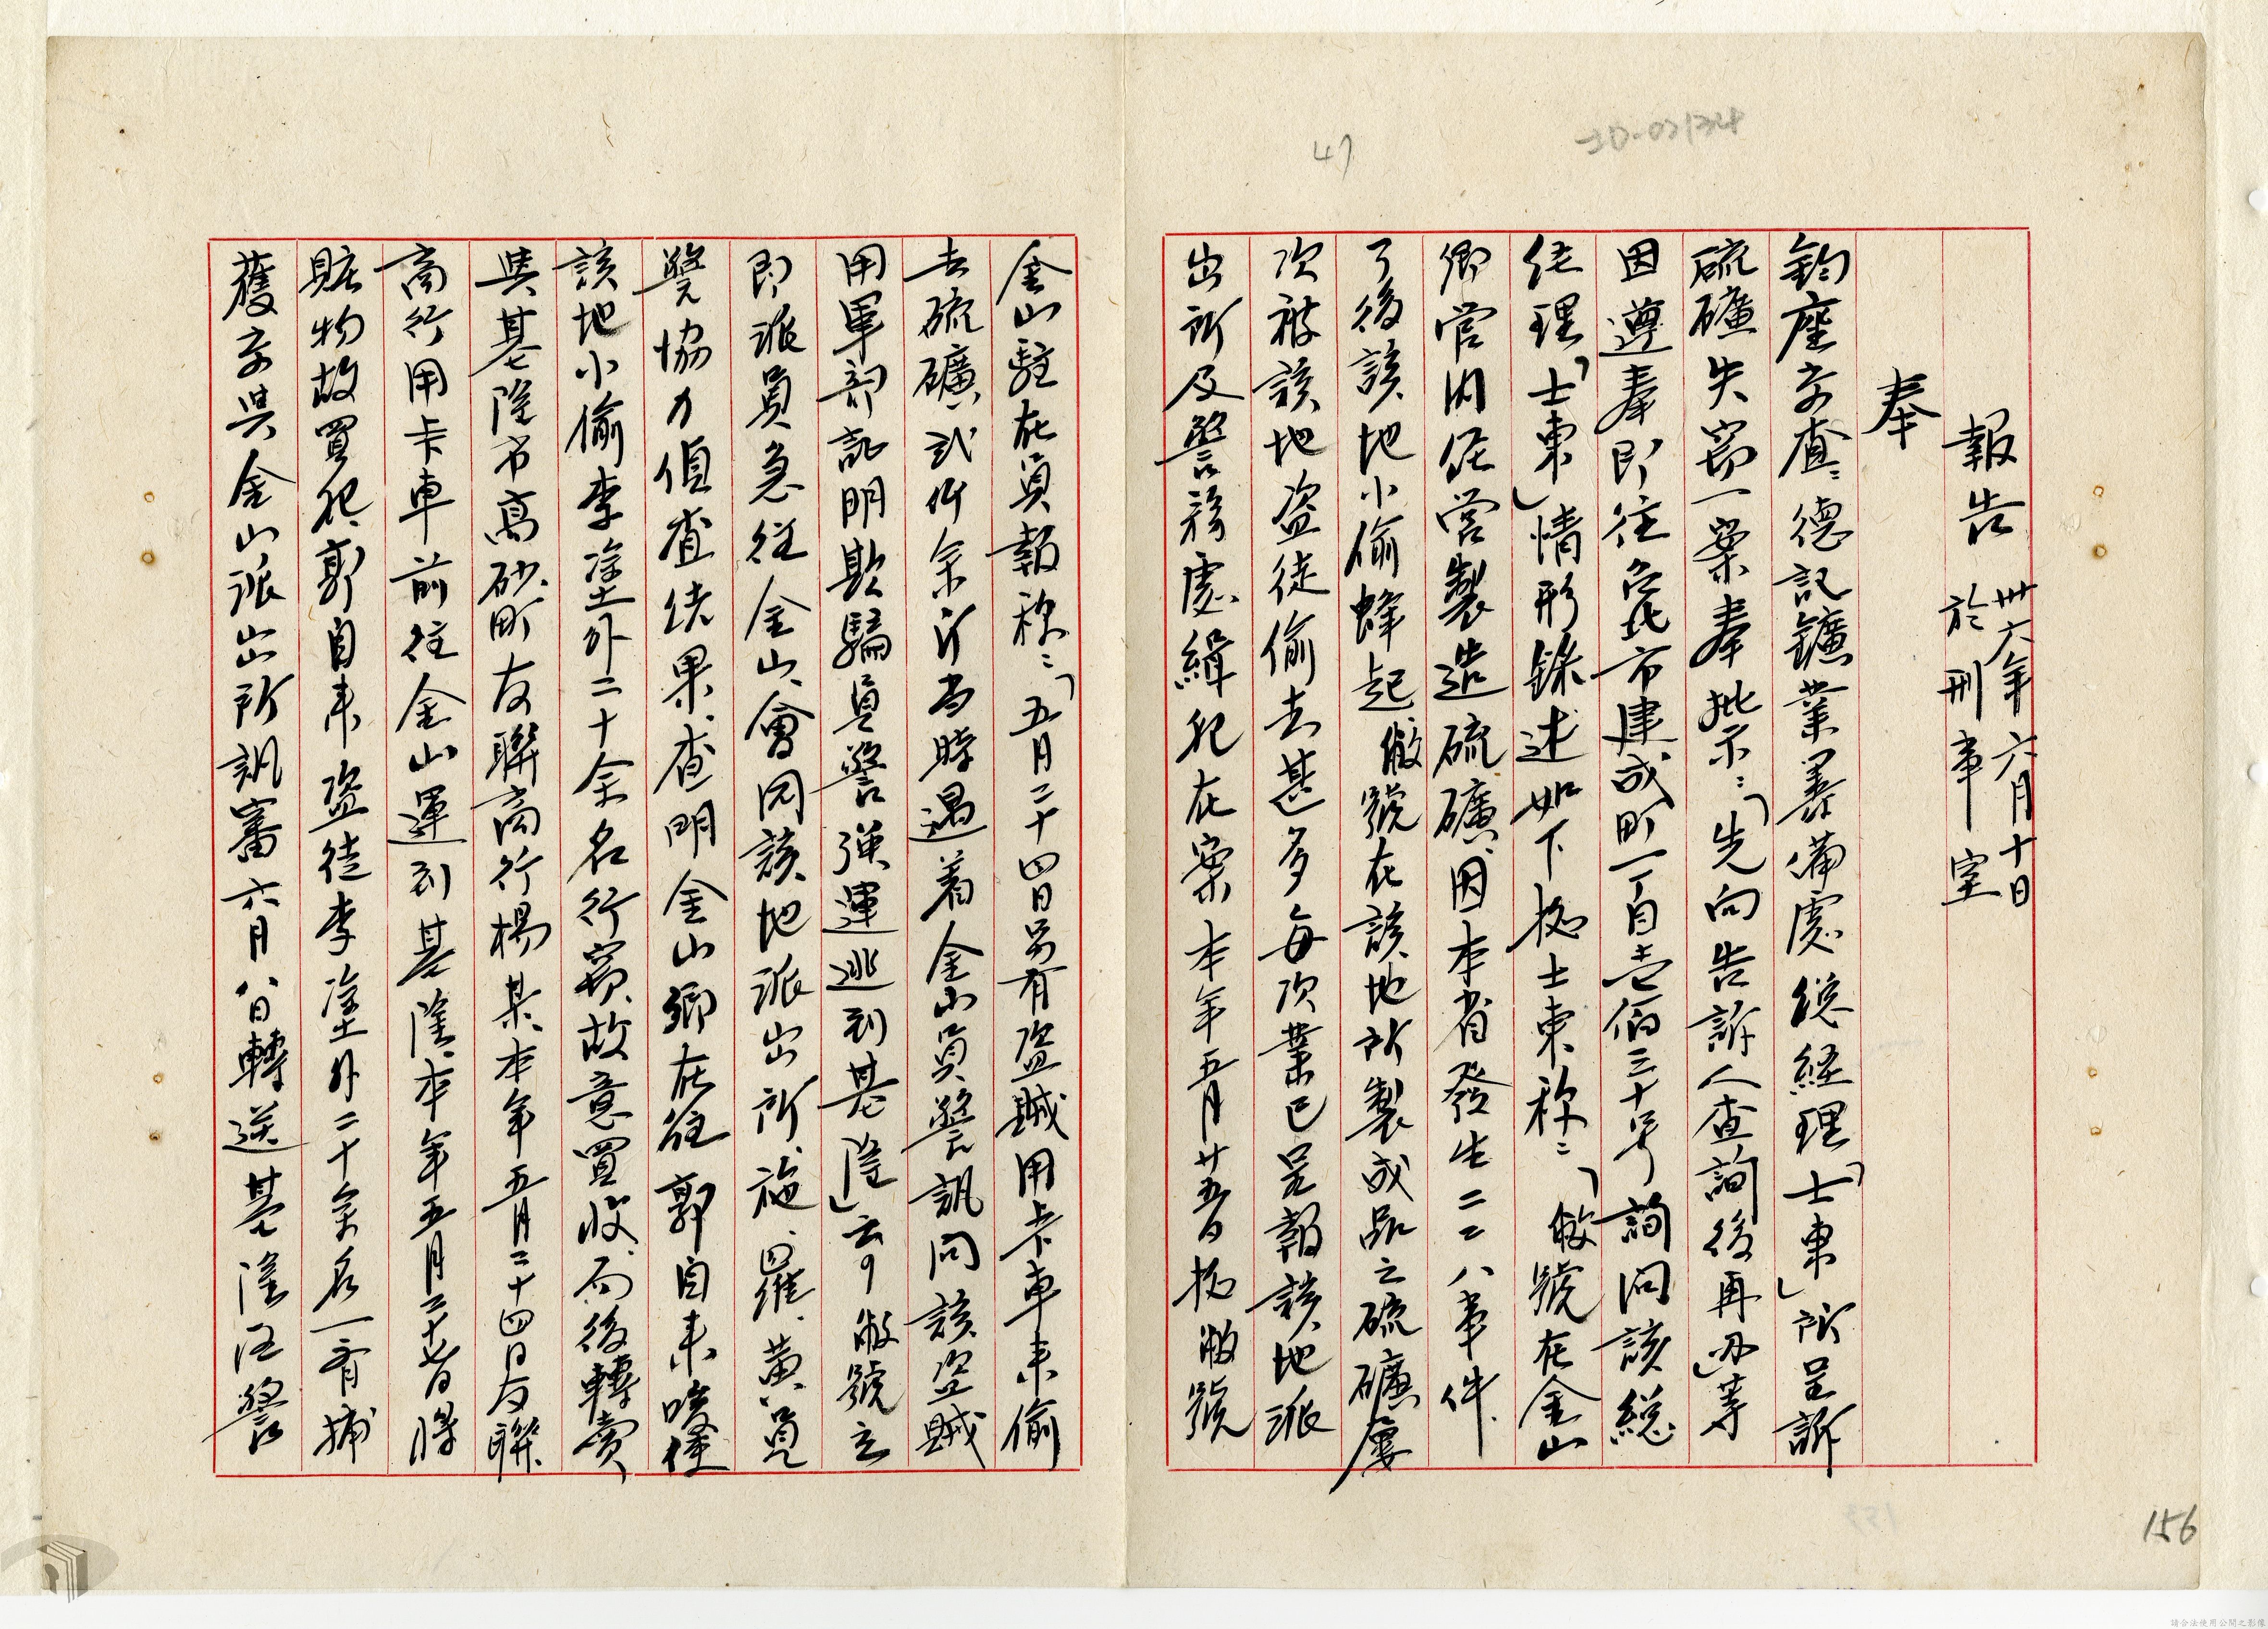 報告 卅六年六月十日
於刑事室
奉
鈞座交查：德記鑛業籌備處總経理「士東」所呈訴
硫礦失窃一案奉批示：「先向告訴人查詢後再办」等
因遵奉即往台北市建成町一丁目壱佰三十号詢问該総
经理「士東」情形録述如下據士東称：「敝號在金山
鄉管内経営製造硫礦、因本省發生二二八事件、
了後該地小偷蜂起敝號在該地所製成品之硫礦屢
次被該地盗徒偷去甚多每次業已呈報該地派
出所及警務處緝犯在案本年五月廿五日據敝號
金山駐在員報称：「五月二十四日另有盗賊用卡車来偷
去硫礦弍仟余斤当時遇着金山員警訊问該盗賊
用軍部証明欺騙員警强運逃到基隆」云々敝號立
即派員急往金山、會同該地派出所、施、羅、黄、員
警協力偵查結果、查明金山鄉在住郭自来唆使
該地小偷李塗土外二十余名行窃、故意買收、而後轉賣
與基隆市高砂町友聯商行楊某、本年五月二十四日友聯
商行用卡車前往金山運到基隆、本年五月二十七日将
賍物故買犯、郭自来盗徒李塗土外二十余名一齊捕
獲交與金山派出所訊審六月八日轉送基隆区警
47
156
請合法使用公開之影像